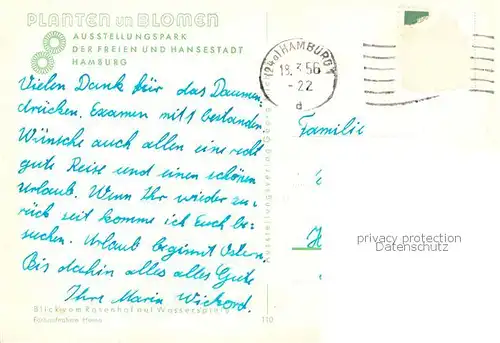 PLANTEN un BLOMEN
AUSSTELLUNGSPARK
DER FREIEN UND HANSESTADT
HAMBURG
(24a) HAMBURG
18.3.56
-22
d
Vielen Dank für das Daumen-
drücken. Examen mit 1 bestanden.
Wünsche auch allen eine recht
gute Reise und einen schönen
Urlaub. Wenn Ihr wieder zu-
rück seit komme ich Euch be-
suchen. Urlaub beginnt Ostern.
Bis dahin alles alles Gute
Ihre Maria
Blick vom Rosenhof auf Wasserspiele
Farbaufnahme
110
Ausstellungsverlag Georg
Familie
privacy protection
Datenschutz